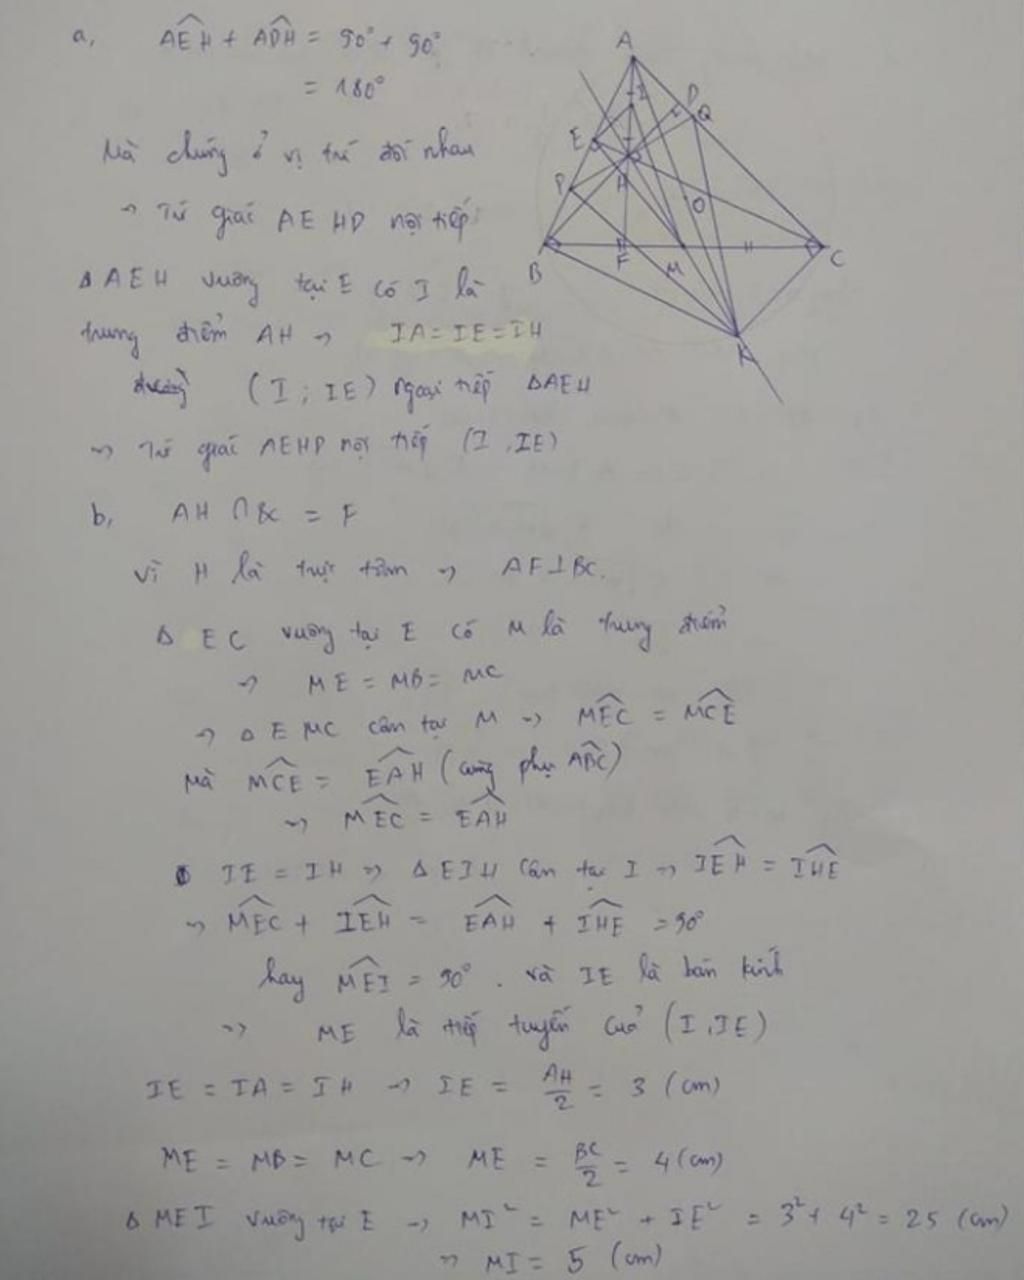 a, AÊH + AD̂H = 90° + 90°
= 180°
Mà chúng ở vị trí đối nhau
→ Tứ giác AEHD nội tiếp
Δ AEH vuông tại E có I là
trung điểm AH → IA = IE = IH
(I ; IE) ngoại tiếp ΔAEH
→ Tứ giác AEHD nội tiếp (I, IE)
b, AH ∩ BC = F
Vì H là trực tâm → AF ⊥ BC.
Δ EC vuông tại E có M là trung điểm
→ ME = MB = MC
→ Δ EMC cân tại M → MÊC = MĈE
Mà MĈE = EÂH (cùng phụ AB̂C)
→ MÊC = EÂH
IE = IH → Δ EIH cân tại I → IÊH = IĤE
→ MÊC + IÊH = EÂH + IĤE = 90°
hay MÊI = 90°. và IE là bán kính
→ ME là tiếp tuyến của (I, IE)
IE = IA = IH → IE = AH/2 = 3 (cm)
ME = MB = MC → ME = BC/2 = 4 (cm)
Δ MEI vuông tại E → MI² = ME² + IE² = 3² + 4² = 25 (cm)
→ MI = 5 (cm)
A
I
D
Q
E
P
H
O
B
F
M
C
K